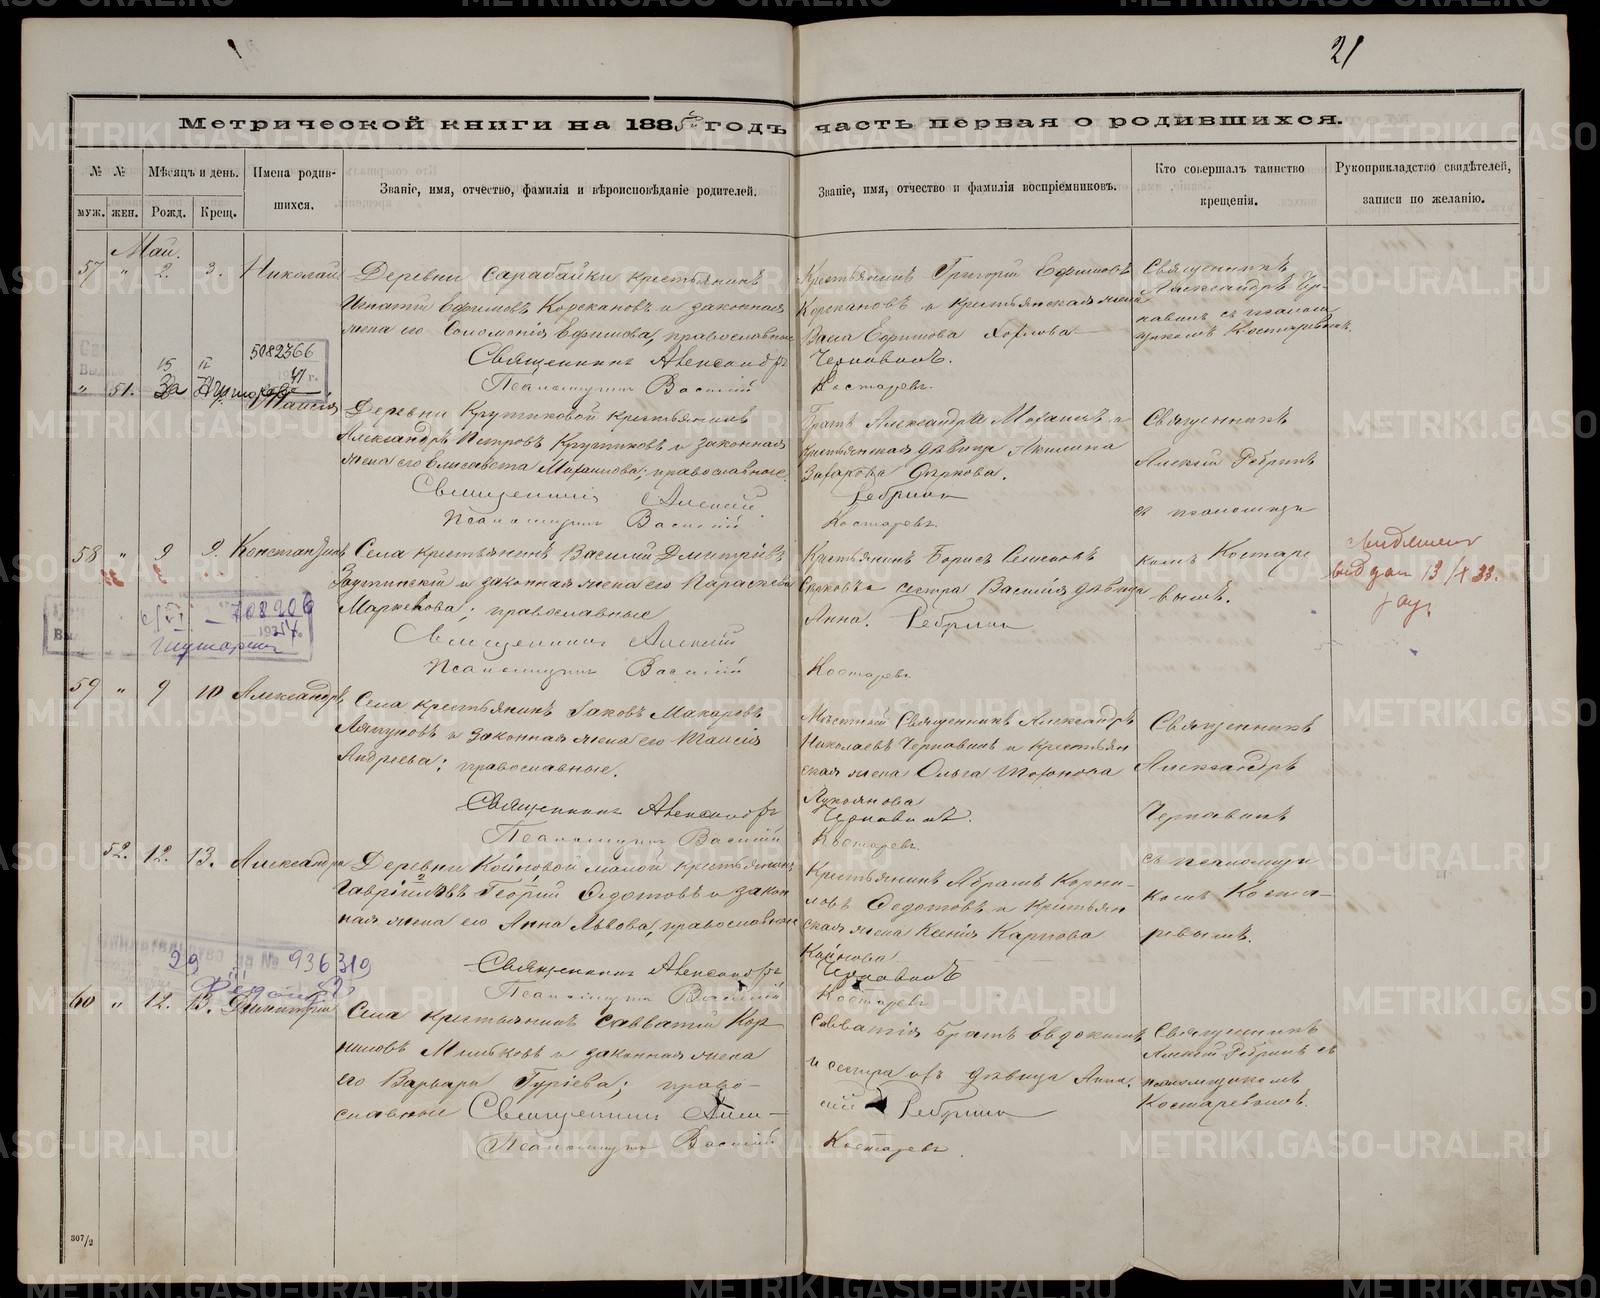 21
Метрической книги на 1885 годъ часть первая о родившихся.
№ № Мѣсяцъ и день. Имена родив-
шихся.
муж. жен. Рожд. Крещ.
Званіе, имя, отчество, фамилія и вѣроисповѣданіе родителей.
Званіе, имя, отчество и фамилія воспріемниковъ.
Кто совершалъ таинство
крещенія.
Рукоприкладство свидѣтелей,
записи по желанію.
Май.
57 " 2. 3. Николай
Деревни Сарабайки крестьянинъ
Игнатій Ефимовъ Корекановъ и законная
жена его Соломонія Ефимова, православные
Священникъ Александръ
Псаломщикъ Василій
Крестьянинъ Григорій Ефимовъ
Корекановъ и крестьянская жена
Васса Ефимова
Чернавинъ.
Костаревъ.
Священникъ
Александръ Чер-
навинъ съ псалом-
щикомъ Костаревымъ.
5082366
41 г.
" 51. Таисія
Деревни Крутиковой крестьянинъ
Александръ Петровъ Крутиковъ и законная
жена его Елисавета Михаилова; православные.
Священникъ Алексій
Псаломщикъ Василій
Братъ Александра Моѵсей и
крестьянская дѣвица Акилина
Захарова
Ребринъ
Костаревъ.
Священникъ
Алексій Ребринъ
съ псаломщи
комъ Костаре
вымъ.
58 " 9 9. Константинъ
Села крестьянинъ Василій Дмитріевъ
и законная жена его Параскева
Маркелова; православные
Священникъ Алексій
Псаломщикъ Василій
Крестьянинъ Борисъ
сестра Василія дѣвица
Анна. Ребринъ
Костаревъ.
выдан 13/X 33.
708206
59 " 9 10 Александръ
Села крестьянинъ Іаковъ Макаровъ
Ляпуновъ и законная жена его Таисія
Андреева; православные.
Священникъ Александръ
Псаломщикъ Василій
Мѣстный Священникъ Александръ
Николаевъ Чернавинъ и крестьян
ская жена Ольга
Лукоянова
Чернавинъ.
Костаревъ.
Священникъ
Александръ
Чернавинъ
съ псаломщи
комъ Коста-
ревымъ.
52. 12. 13. Александра
Деревни Койновой малой крестьянинъ
Гавріиловъ Георгій Ѳедотовъ и закон
ная жена его Анна Львова, православные
Священникъ Александръ
Псаломщикъ Василій
Крестьянинъ Абрамъ Корни-
ловъ Ѳедотовъ и крестьян
ская жена Ксенія Карпова
Койнова
Чернавинъ
Костаревъ
29 № 936319
60 " 12. 13. Димитрій
Села крестьянинъ Савватій Кор
ниловъ и законная жена
его Варвара Гуріева; право-
славные Священникъ Алек-
Псаломщикъ Василій
Савватія братъ Евдокимъ
и сестра ихъ дѣвица Анна.
сій Ребринъ
Костаревъ.
Священникъ
Алексій Ребринъ съ
псаломщикомъ
Костаревымъ.
307/2
METRIKI.GASO-URAL.RU